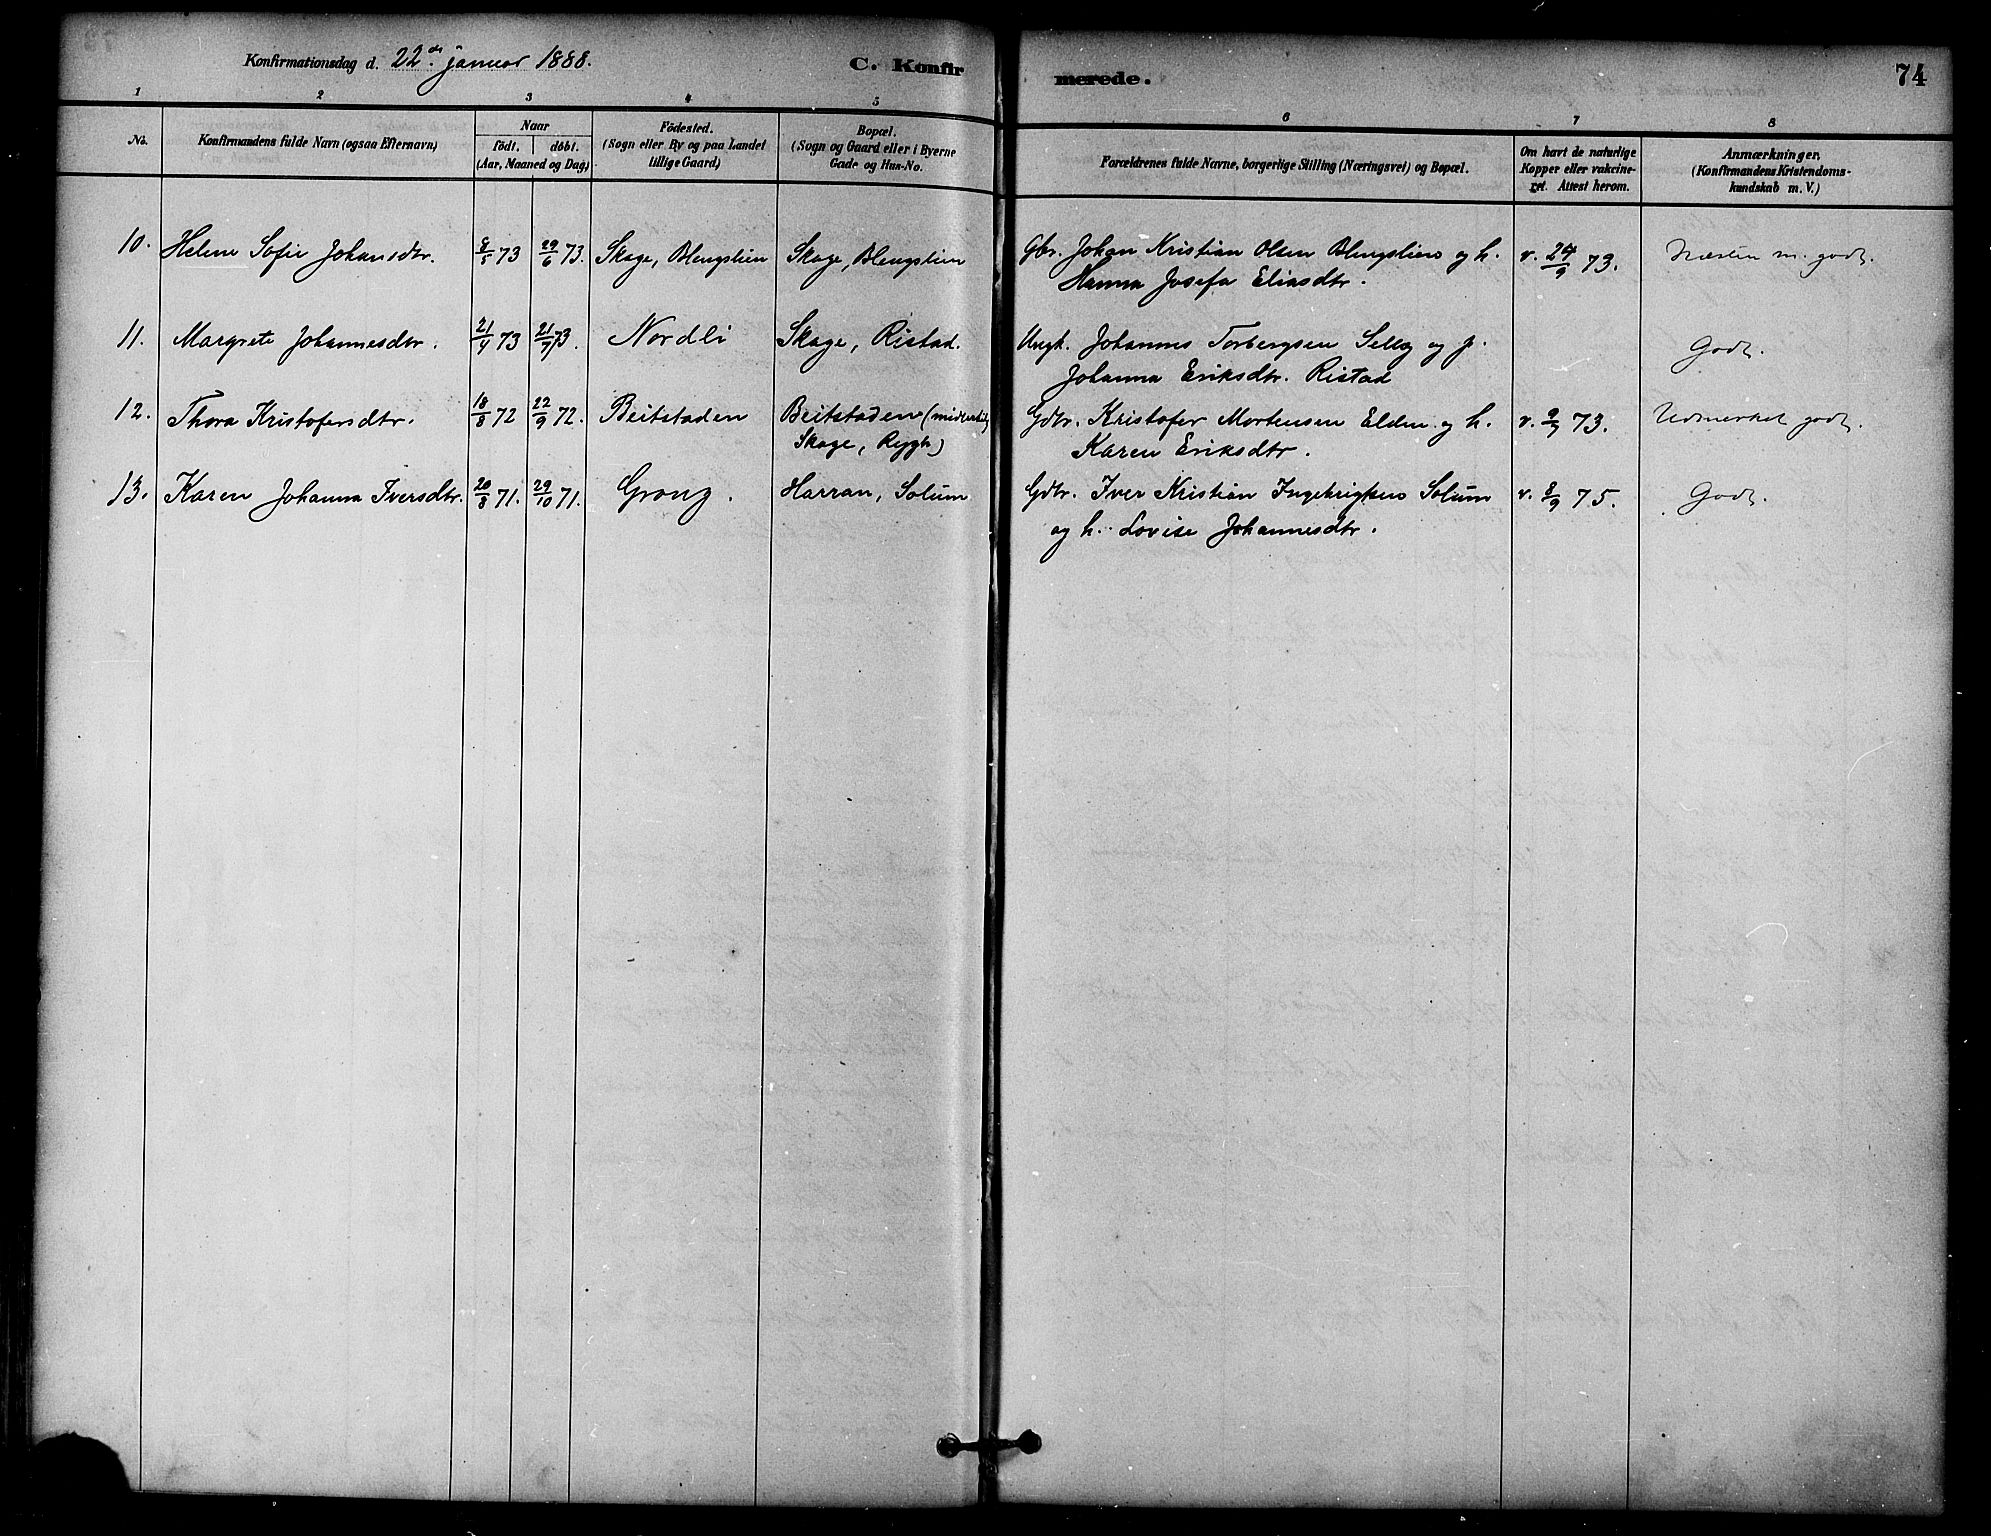 Konfirmationsdag d. 22de januar 1888.
C. Konfirmerede.
74
1 2 3 4 5 6 7 8
No.
Konfirmandens fulde Navn (ogsaa Efternavn)
Naar
födt. döbt.
(Aar, Maaned og Dag)
Födested.
(Sogn eller By og paa Landet
tillige Gaard)
Bopæl.
(Sogn og Gaard eller i Byerne
Gade og Hus-No.
Forældrenes fulde Navne, borgerlige Stilling (Næringsvei) og Bopæl.
Om havt de naturlige
Kopper eller vakcine-
ret. Attest herom.
Anmærkninger.
(Konfirmandens Kristendoms-
kundskab m. V.)
10. Helene Sofie Johansdtr. 8/5 73 29/6 73. Skage, Blengslien Skage, Blengslien Gbr. Johan Kristian Olsen Blengslien og h. v. 24/9 73. Næsten m. godt.
Hanna Josefa Eliasdtr.
11. Margrete Johannesdtr. 21/4 73 21/7 73. Nordli Skage, Ristad. Ungk. Johannes Torbergsen Selly og p. Godt.
Johanna Eriksdtr. Ristad
12. Thora Kristofersdtr. 18/8 72 22/9 72. Beitstaden Beitstaden (midlertidig Gdbr. Kristofer Mortensen Elden og h. v. 9/7 73. Udmerket godt.
Skage, Rygh) Karen Eriksdtr.
13. Karen Johanna Iversdtr. 20/8 71. 29/10 71. Grong. Harran, Solum Gdbr. Iver Kristian Ingebrigtsen Solum v. 8/9 75. Godt.
og h. Lovise Johannesdtr.